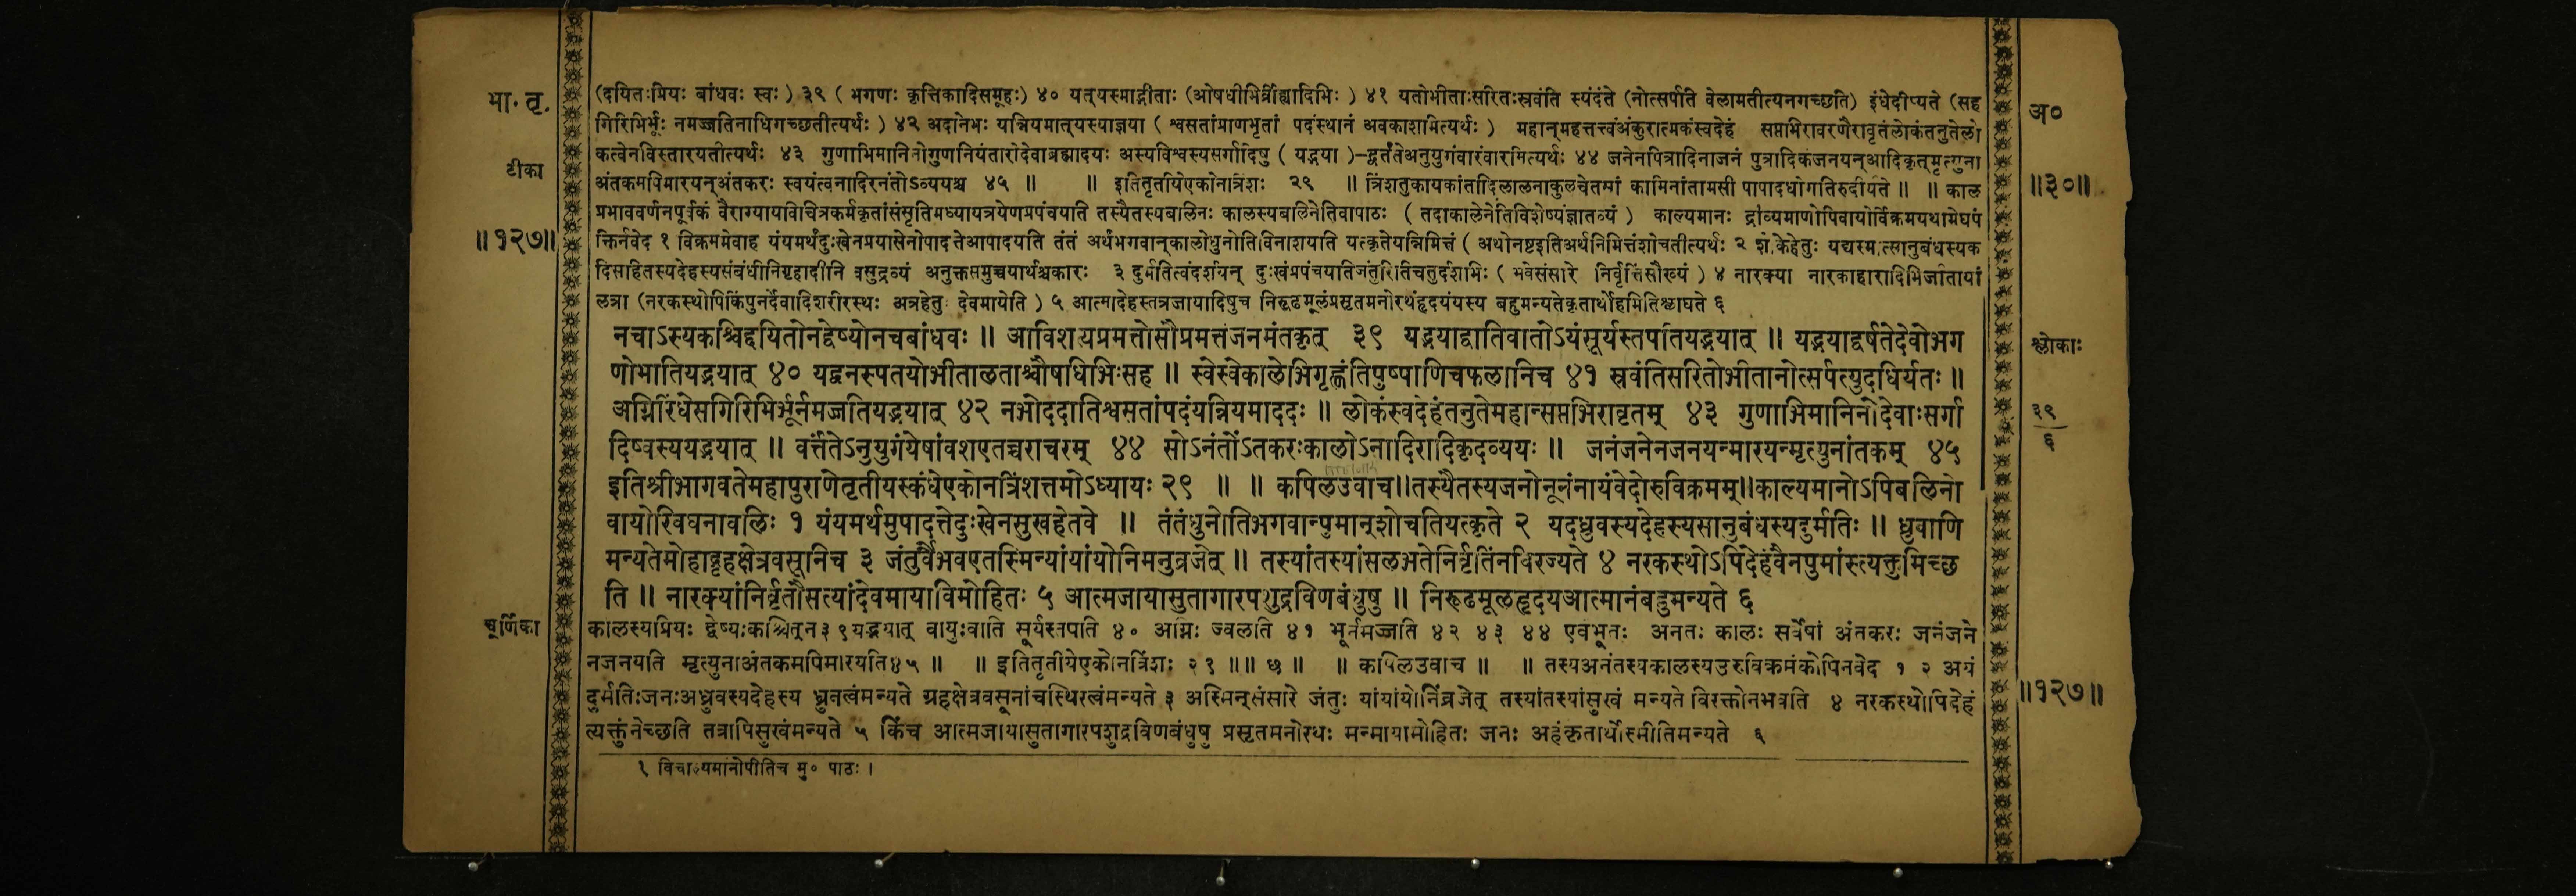 भा. तृ.
टीका
॥१२७॥
(दयितःप्रियः बांधवः स्वः) ३९ ( भगणः कृत्तिकादिसमूहः) ४० यत्यस्माद्भीताः (ओषधीभिर्व्रीह्यादिभिः ) ४१ यतोभीताःसरितःस्रवंति स्यंदंते (नोत्सर्पति वेलामतीत्यनगच्छति) इंधेदीप्यते (सह
गिरिभिर्भूः नमज्जतिनाधिगच्छतीत्यर्थः ) ४२ अदानेभः यन्नियमात्यस्याज्ञया ( श्वसतांप्राणभृतां पदंस्थानं अवकाशमित्यर्थः ) महान्महत्तत्त्वंअंकुरात्मकंस्वदेहं सप्तभिरावरणैरावृतंलोकंतनुतेलो
कत्वेनविस्तारयतीत्यर्थः ४३ गुणाभिमानिनोगुणनियंतारोदेवाब्रह्मादयः अस्यविश्वस्यसर्गादिषु ( यद्भया )–द्वर्तंतेअनुयुगंवारंवारमित्यर्थः ४४ जनेनपित्रादिनाजनं पुत्रादिकंजनयन्आदिकृत्मृत्युना
अंतकमपिमारयन्अंतकरः स्वयंत्वनादिरनंतोऽव्ययश्च ४५ ॥ ॥ इतितृतीयेएकोनत्रिंशः २९ ॥ त्रिंशतुकायकांतादिलालनाकुलचेतसां कामिनांतामसी पापादधोगतिरुदीर्यते ॥ ॥ काल
प्रभाववर्णनपूर्वकं वैराग्यायविचित्रकर्मकृतांसंसृतिमध्यायत्रयेणप्रपंचयति तस्यैतस्यबलिनः कालस्यबलिनेतिवापाठः ( तदाकालेनेतिविशेष्यंज्ञातव्यं ) काल्यमानः द्राव्यमाणोपिवायोर्विक्रमयथामेघपं
क्तिर्नवेद १ विक्रममेवाह यंयमर्थंदुःखेनप्रयासेनोपादत्तेआपादयति तंतं अर्थंभगवान्कालोधुनोतिविनाशयति यत्कृतेयन्निमित्तं ( अथोनष्टइतिअर्थनिमित्तंशोचतीत्यर्थः २ शोकेहेतुः यद्यस्मात्सानुबंधस्यक
दिसहितस्यदेहस्यसंबंधीनिगृहादीनि वसुद्रव्यं अनुक्तसमुच्चयार्थश्चकारः ३ दुर्मतित्वंदर्शयन् दुःखंप्रपंचयतिजंतुरितिचतुर्दशभिः ( भवेसंसारे निर्वृतिंसौख्यं ) ४ नारक्या नारकाहारादिभिर्जातायां
लत्रा (नरकस्थोपिकिंपुनर्देवादिशरीरस्थः अत्रहेतुः देवमायेति ) ५ आत्मादेहस्तत्रजायादिषुच निरूढमूलंप्रसृतमनोरथंहृदयंयस्य बहुमन्यतेकृतार्थोहमितिश्लाघते ६
नचाऽस्यकश्चिद्दयितोनद्वेष्योनचबांधवः ॥ आविशत्यप्रमत्तोसौप्रमत्तंजनमंतकृत् ३९ यद्भयाद्वातिवातोऽयंसूर्यस्तपतियद्भयात् ॥ यद्भयाद्वर्षतेदेवोभग
णोभातियद्भयात् ४० यद्वनस्पतयोभीतालताश्चौषधिभिःसह ॥ स्वेस्वेकालेभिगृह्णंतिपुष्पाणिचफलानिच ४१ स्रवंतिसरितोभीतानोत्सर्पत्युदधिर्यतः ॥
अग्निरिंधेसगिरिभिर्भूर्नमज्जतियद्भयात् ४२ नभोददातिश्वसतांपदंयन्नियमाददः ॥ लोकंस्वदेहंतनुतेमहान्सप्तभिरावृतम् ४३ गुणाभिमानिनोदेवाःसर्गा
दिष्वस्ययद्भयात् ॥ वर्त्ततेऽनुयुगंयेषांवशएतच्चराचरम् ४४ सोऽनंतोंऽतकरःकालोऽनादिरादिकृदव्ययः ॥ जनंजनेनजनयन्मारयन्मृत्युनांतकम् ४५
इतिश्रीभागवतेमहापुराणेतृतीयस्कंधेएकोनत्रिंशत्तमोऽध्यायः २९ ॥ ॥ कपिलउवाच।।तस्यैतस्यजनोनूनंनायंवेदोरुविक्रमम्।।काल्यमानोऽपिबलिनो
वायोरिवघनावलिः १ यंयमर्थमुपादत्तेदुःखेनसुखहेतवे ॥ तंतंधुनोतिभगवान्पुमान्शोचतियत्कृते २ यदध्रुवस्यदेहस्यसानुबंधस्यदुर्मतिः ॥ ध्रुवाणि
मन्यतेमोहाद्गृहक्षेत्रवसूनिच ३ जंतुर्वैभवएतस्मिन्यांयांयोनिमनुव्रजेत् ॥ तस्यांतस्यांसलभतेनिर्वृतिंनविरज्यते ४ नरकस्थोऽपिदेहंवैनपुमांस्त्यक्तुमिच्छ
ति ॥ नारक्यांनिर्वृतौसत्यांदेवमायाविमोहितः ५ आत्मजायासुतागारपशुद्रविणबंधुषु ॥ निरूढमूलहृदयआत्मानंबहुमन्यते ६
चूर्णिका
कालस्यप्रियः द्वेष्यःकश्चित्न३९यद्भयात् वायुःवाति सूर्यस्तपाति ४० अग्निः ज्वलति ४१ भूर्नमज्जति ४२ ४३ ४४ एवंभूतः अनंतः कालः सर्वेषां अंतकरः जनंजने
नजनयति मृत्युनाअंतकमपिमारयति४५ ॥ ॥ इतितृतीयेएकोनत्रिंशः २९ ॥॥ छ ॥ ॥ कपिलउवाच ॥ ॥ तस्यअनंतस्यकालस्यउरुविक्रमंकोपिनवेद १ २ अयं
दुर्मतिःजनःअध्रुवस्यदेहस्य ध्रुवत्वंमन्यते ग्रहक्षेत्रवसूनांचस्थिरत्वंमन्यते ३ अस्मिन्संसारे जंतुः यांयांयोनिंव्रजेत् तस्यांतस्यांसुखं मन्यते विरक्तोनभवति ४ नरकस्थोपिदेहं
त्यक्तुंनेच्छति तत्रापिसुखंमन्यते ५ किंच आत्मजायासुतागारपशुद्रविणबंधुषु प्रसृतमनोरथः मन्मायामोहितः जनः अहंकृतार्थोस्मीतिमन्यते ६
१ विचाल्यमानोपीतिच मु० पाठः ।
अ०
॥३०॥
श्लोकाः
३९
६
॥१२७॥